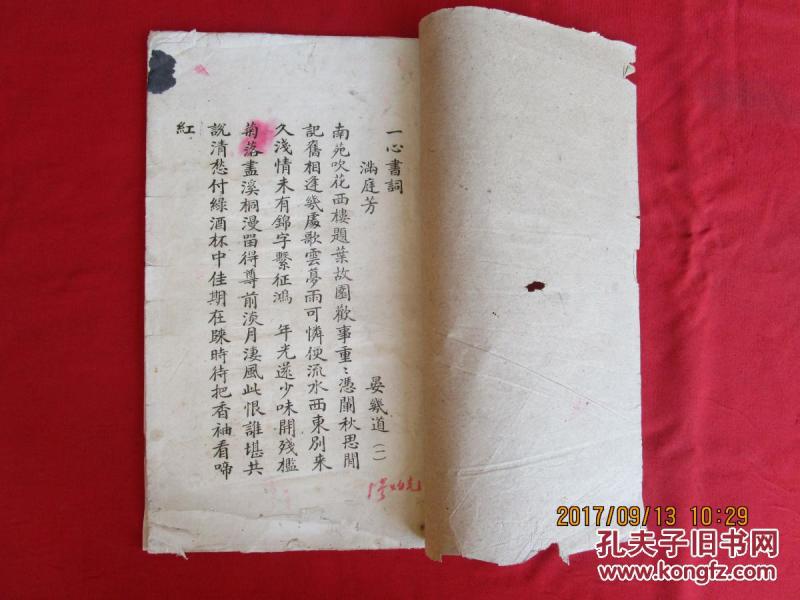 一心書詞
滿庭芳
晏幾道 (一)
南苑吹花西樓題葉故園歡事重〻憑闌秋思閒
記舊相逢幾處歌雲夢雨可憐便流水西東別來
久淺情未有錦字繫征鴻 年光還少味開殘檻
菊落盡溪桐漫留得尊前淡月淒風此恨誰堪共
說清愁付綠酒杯中佳期在歸時待把香袖看啼
紅
2017/09/13 10:29
孔夫子旧书网
www.kongfz.com